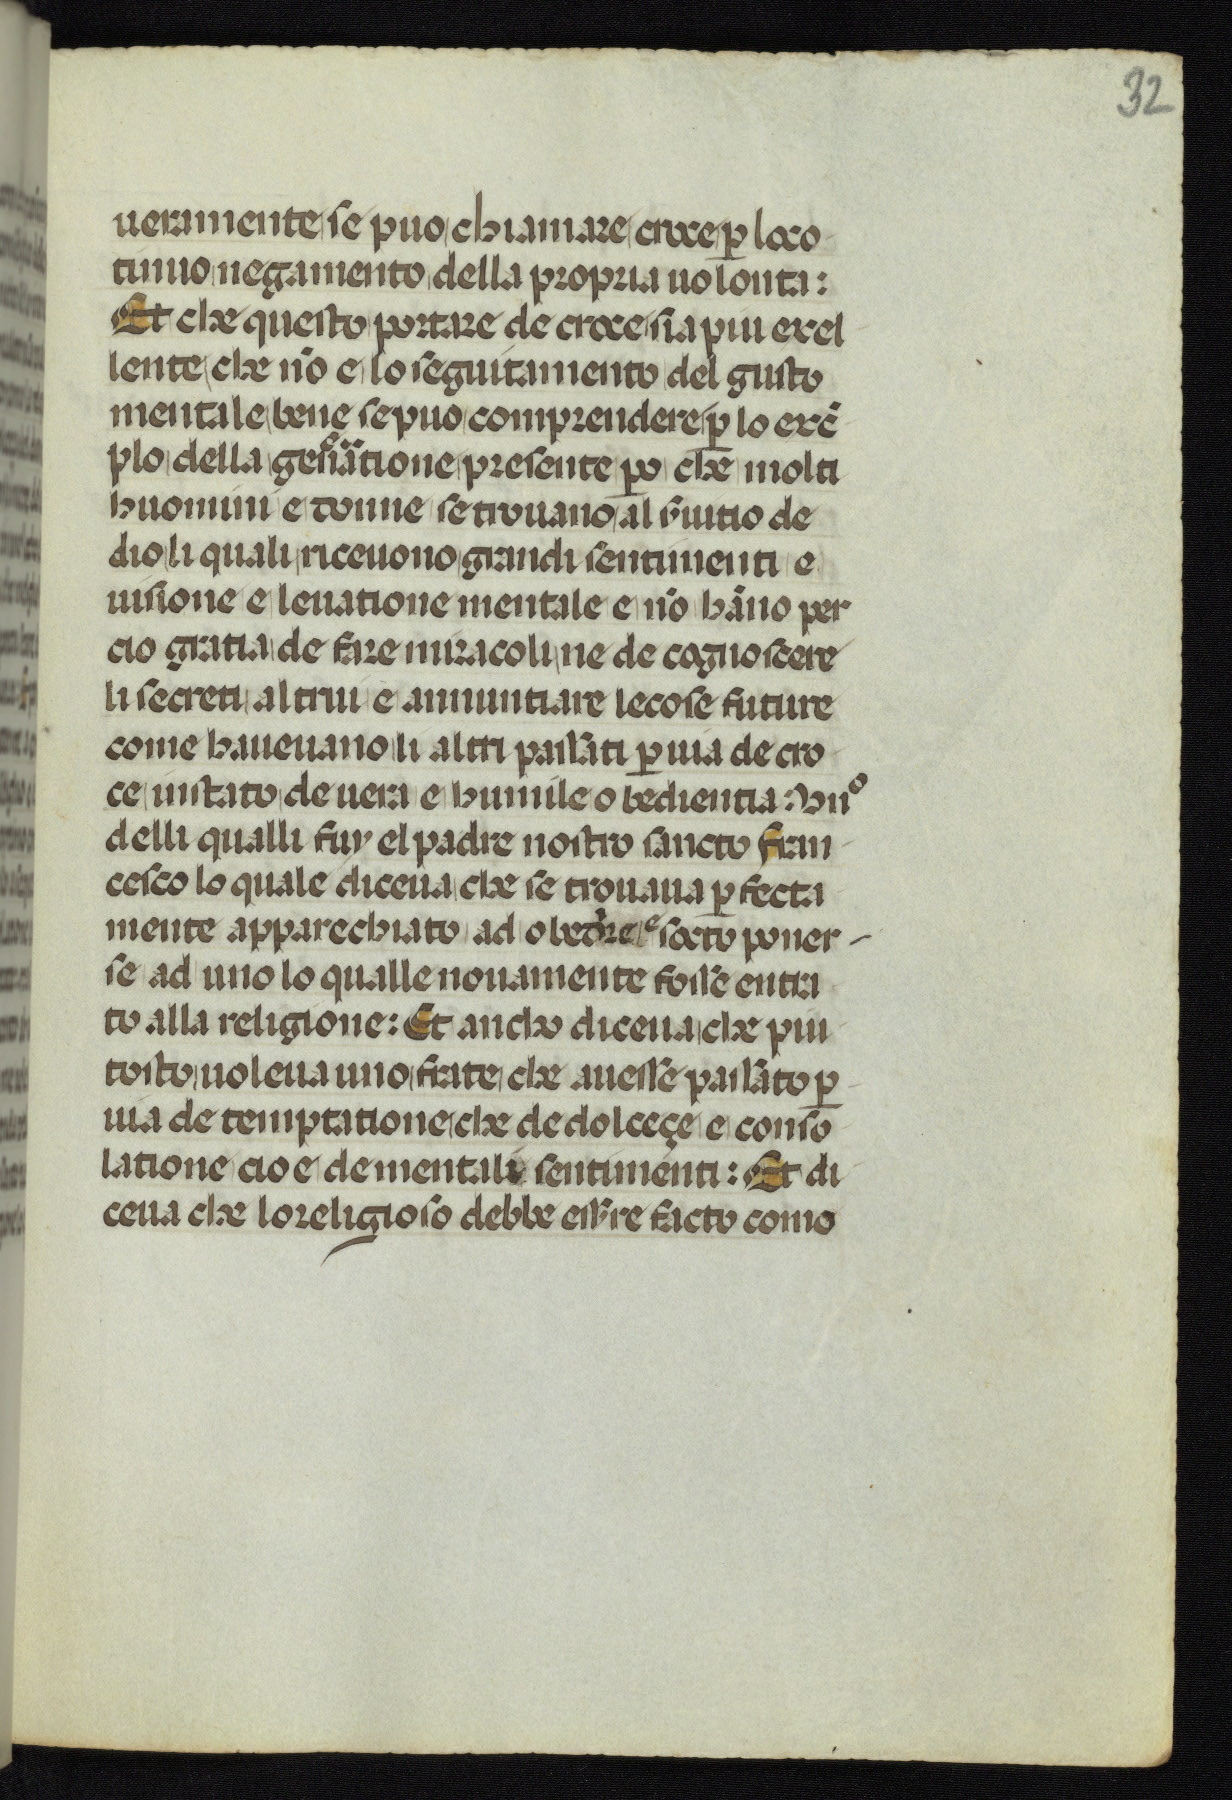 32
ueramente se puo chiamare croce ꝑ lo co
tinuo negamento della propria uolonta:
Et che questo portare de croce sia piu exel
lente che nō e lo seguitamento del gusto
mentale bene se puo comprendere ꝑ lo exē
plo della presente ꝑo che molti
huomini e donne se trouano al s̄uitio de
dio li quali riceuono grandi sentimenti e
uisione e leuatione mentale e nō hāno per
cio gratia de fare miracoli ne de cognoscere
li secreti altrui e annuntiare le cose future
come haueuano li altri passati ꝑ uia de cro
ce in stato de uera e humile obedientia: Vnº
delli qualli fuy el padre nostro sancto fran
cesco lo quale diceua che se trouaua ꝑfecta
mente apparechiato ad obed're e socto poner
se ad uno lo qualle nouamente fosse entra
to alla religione: Et ancho diceua che piu
tosto uoleua uno frate che auesse passato ꝑ
uia de temptatione che de dolceçe e conso
latione cio e de mentali sentimenti: Et di
ceua che lo religioso debbe ess're facto como